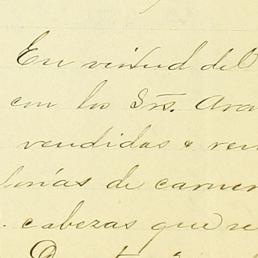 En virtud del
con los Srs. Ara
vendidas & ven
lonias de carner
cabezas que se